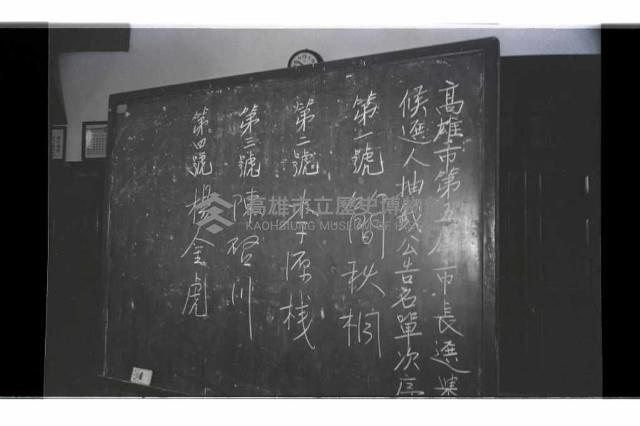 高雄市第五屆市長選舉
候選人抽籤公告名單次序
第一號 簡秋桐
第二號 李源棧
第三號 陳啓川
第四號 楊金虎
高雄市立歷史博物館
KAOHSIUNG MUSEUM OF HISTORY